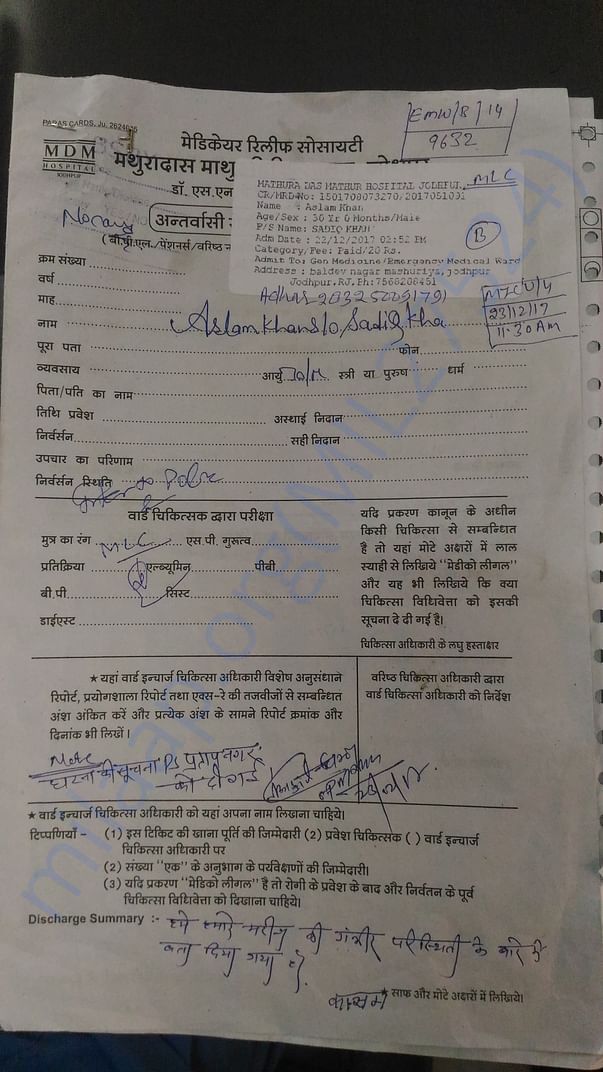 PARAS CARDS, Ju.
EMW/B/14
9632
मेडिकेयर रिलीफ सोसायटी
MDM
HOSPITAL
JODHPUR
मथुरादास माथु
डॉ. एस.एन
अन्तर्वासी
(बी.पी.एल./पेंशनर्स/वरिष्ठ न
MATHURA DAS MATHUR HOSPITAL JODHPUR,
MLC
CR/MRD No: 1501700073270/2017051091
Name : Aslam Khan
Age/Sex : 30 Yr 6 Months/Male
F/S Name: SADIQ KHAN
Adm Date : 22/12/2017 02:52 PM
Category/Fee: Paid/20 Rs.
Admit To: Gen Medicine/Emergency Medical Ward
Address : baldev nagar mashuriya, jodhpur
Jodhpur.RJ. Ph:7568208451
B
क्रम संख्या
वर्ष
माह
23/12/17
11:30 AM
नाम Aslam Khan S/o Sadiq Kha
पूरा पता फोन
व्यवसाय आयु स्त्री या पुरुष धर्म
पिता/पति का नाम
तिथि प्रवेश अस्थाई निदान
निर्वर्सन सही निदान
उपचार का परिणाम
निर्वर्सन स्थिति
वार्ड चिकित्सक द्वारा परीक्षा
मुत्र का रंग MLC एस.पी. गुरूत्व
प्रतिक्रिया एल्ब्यूमिन पीबी
बी.पी. सिस्ट
डाईएस्ट
यदि प्रकरण कानून के अधीन
किसी चिकित्सा से सम्बन्धित
है तो यहां मोटे अक्षरों में लाल
स्याही से लिखिये "मेडीको लीगल"
और यह भी लिखिये कि क्या
चिकित्सा विधिवेत्ता को इसकी
सूचना दे दी गई है।
चिकित्सा अधिकारी के लघु हस्ताक्षर
★ यहां वार्ड इन्चार्ज चिकित्सा अधिकारी विशेष अनुसंधाने
रिपोर्ट, प्रयोगशाला रिपोर्ट तथा एक्स-रे की तजवीजों से सम्बन्धित
अंश अंकित करें और प्रत्येक अंश के सामने रिपोर्ट क्रमांक और
दिनांक भी लिखें।
वरिष्ठ चिकित्सा अधिकारी द्वारा
वार्ड चिकित्सा अधिकारी को निर्देश
Note
घटना की सूचना PS प्रतापनगर
को दी गई
★ वार्ड इन्चार्ज चिकित्सा अधिकारी को यहां अपना नाम लिखना चाहिये।
टिप्पणियाँ - (1) इस टिकिट की खाना पूर्ति की जिम्मेदारी (2) प्रवेश चिकित्सक ( ) वार्ड इन्चार्ज
चिकित्सा अधिकारी पर
(2) संख्या "एक" के अनुभाग के पर्यवेक्षणों की जिम्मेदारी।
(3) यदि प्रकरण "मेडिको लीगल" है तो रोगी के प्रवेश के बाद और निर्वतन के पूर्व
चिकित्सा विधिवेत्ता को दिखाना चाहिये।
Discharge Summary :- हमे हमारे मरीज की गंभीर परिस्थिती के बारे में
बता दिया गया है।
★ साफ और मोटे अक्षरों में लिखिये।